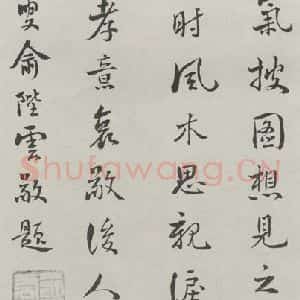 氣披圖想見之
时風木思親淚
孝意哀敬後人
叟俞陛雲敬題
Shufawang.CN